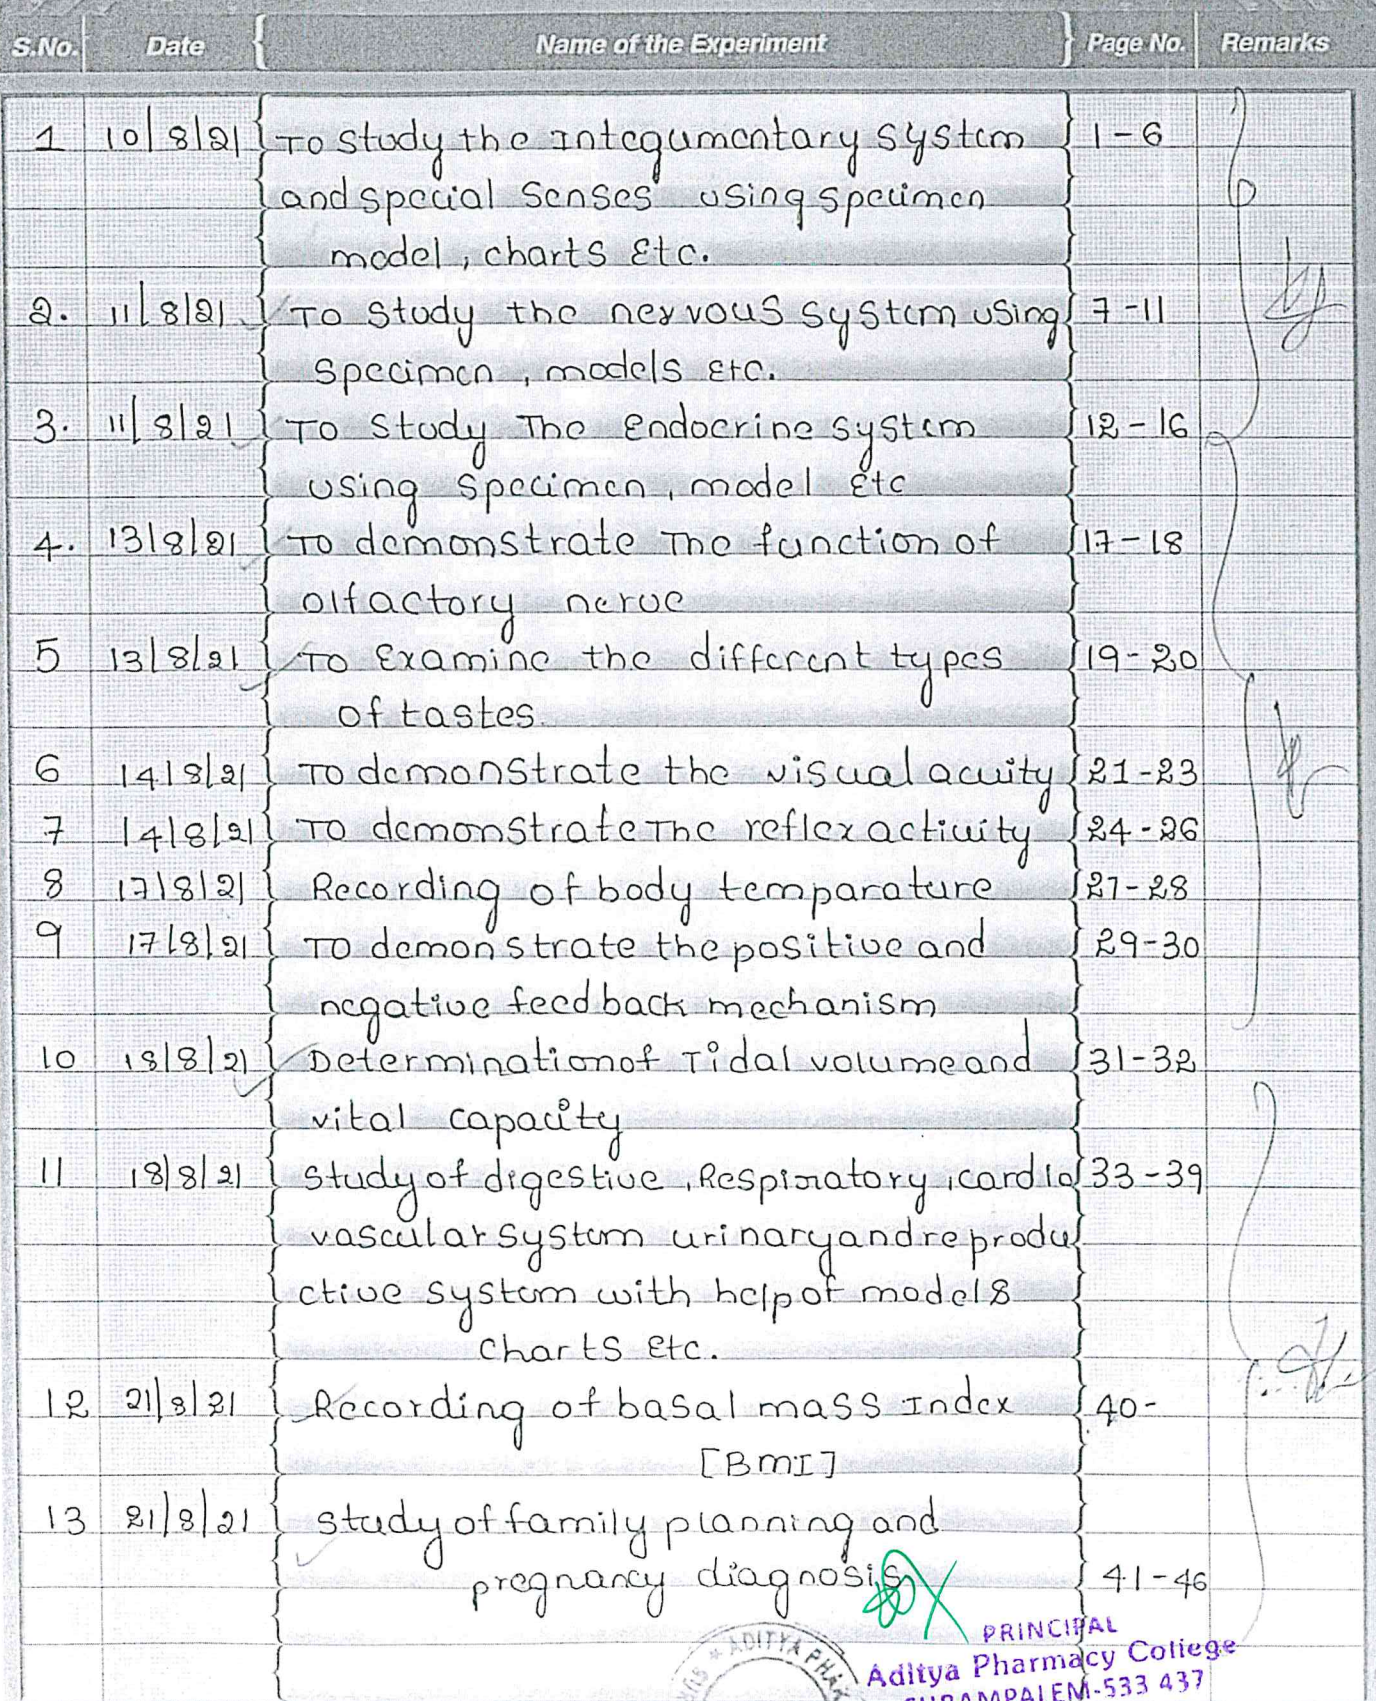 S.No. Date Name of the Experiment Page No. Remarks
1 10/8/21 To study the Integumentary system 1-6
and special senses using specimen
model, charts Etc.
2. 11/8/21 To study the nervous system using 7-11
specimen, models Etc.
3. 11/8/21 To study The Endocrine system 12-16
using specimen, model Etc
4. 13/8/21 To demonstrate The function of 17-18
olfactory nerve
5 13/8/21 To Examine the different types 19-20
of tastes.
6 14/8/21 To demonstrate the visual acuity 21-23
7 14/8/21 To demonstrate The reflex activity 24-26
8 17/8/21 Recording of body temparature 27-28
9 17/8/21 To demonstrate the positive and 29-30
negative feedback mechanism
10 18/8/21 Determination of Tidal volume and 31-32
vital capacity
11 18/8/21 Study of digestive, Respiratory, cardio 33-39
vascular system urinary and reprodu
ctive system with help of models
charts Etc.
12 21/8/21 Recording of basal mass Index 40-
[BMI]
13 21/8/21 study of family planning and
pregnancy diagnosis 41-46
PRINCIPAL
ADITYA Aditya Pharmacy College
533 437